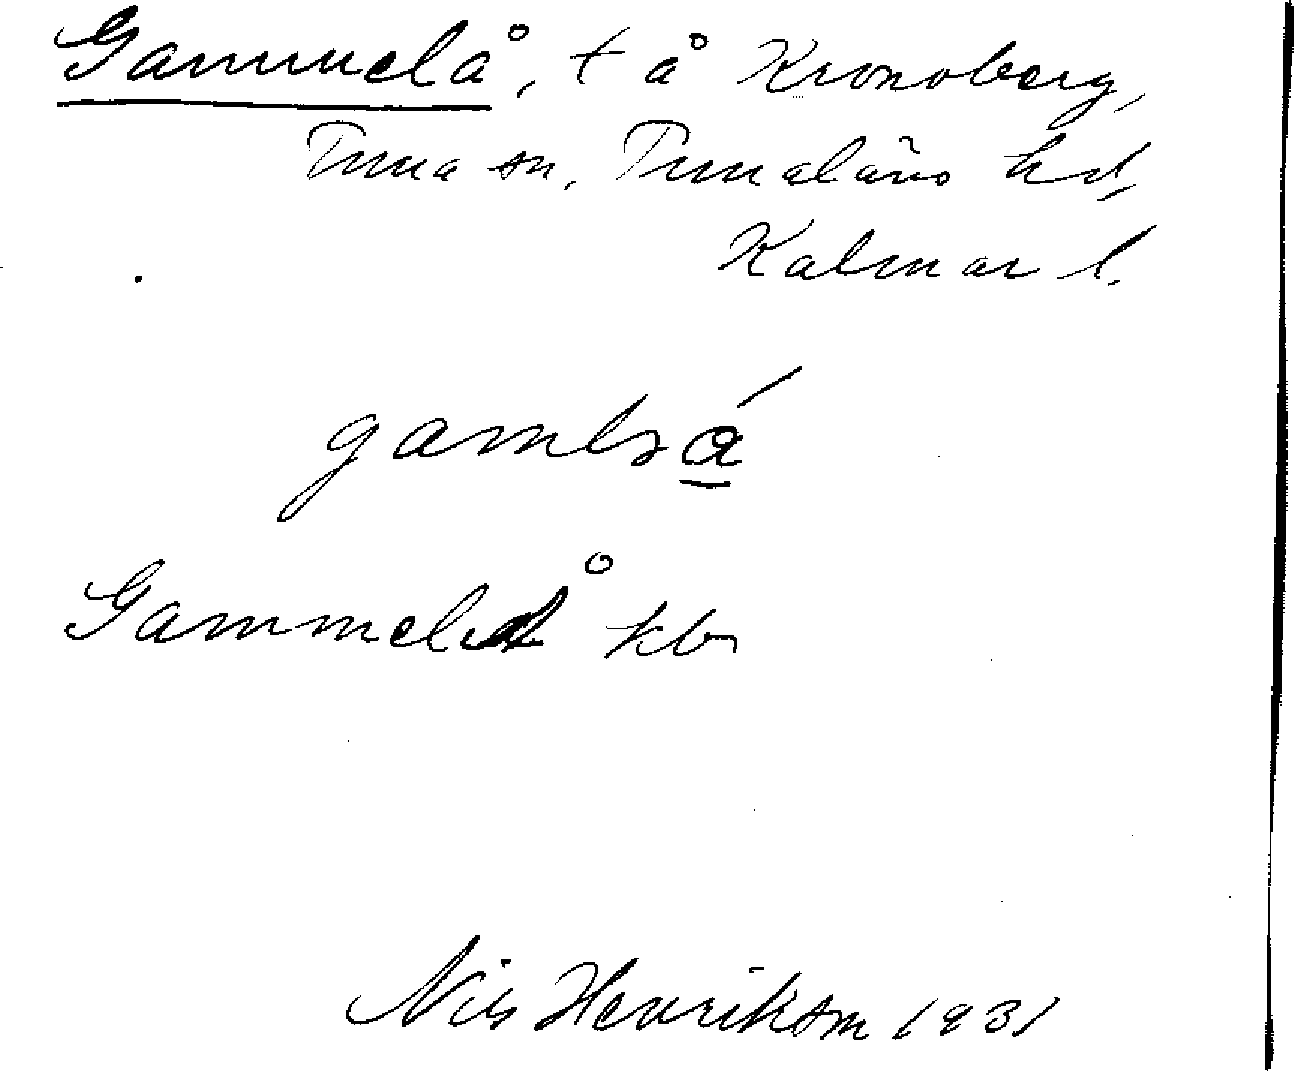 Gammelå, t å Kronoberg,
Tuna sn, Tunaläns hd,
Kalmar l.
Gammelå kbr
Nils Henrikson 1931